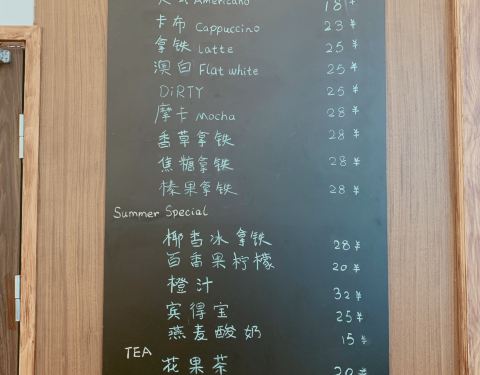 美式 Americano 18¥
卡布 Cappuccino 23¥
拿铁 Latte 25¥
澳白 Flat white 25¥
DiRTY 25¥
摩卡 Mocha 28¥
香草拿铁 28¥
焦糖拿铁 28¥
榛果拿铁 28¥
Summer Special
椰香冰拿铁 28¥
百香果柠檬 20¥
橙汁 32¥
宾得宝 25¥
燕麦酸奶 15¥
TEA
花果茶 20¥